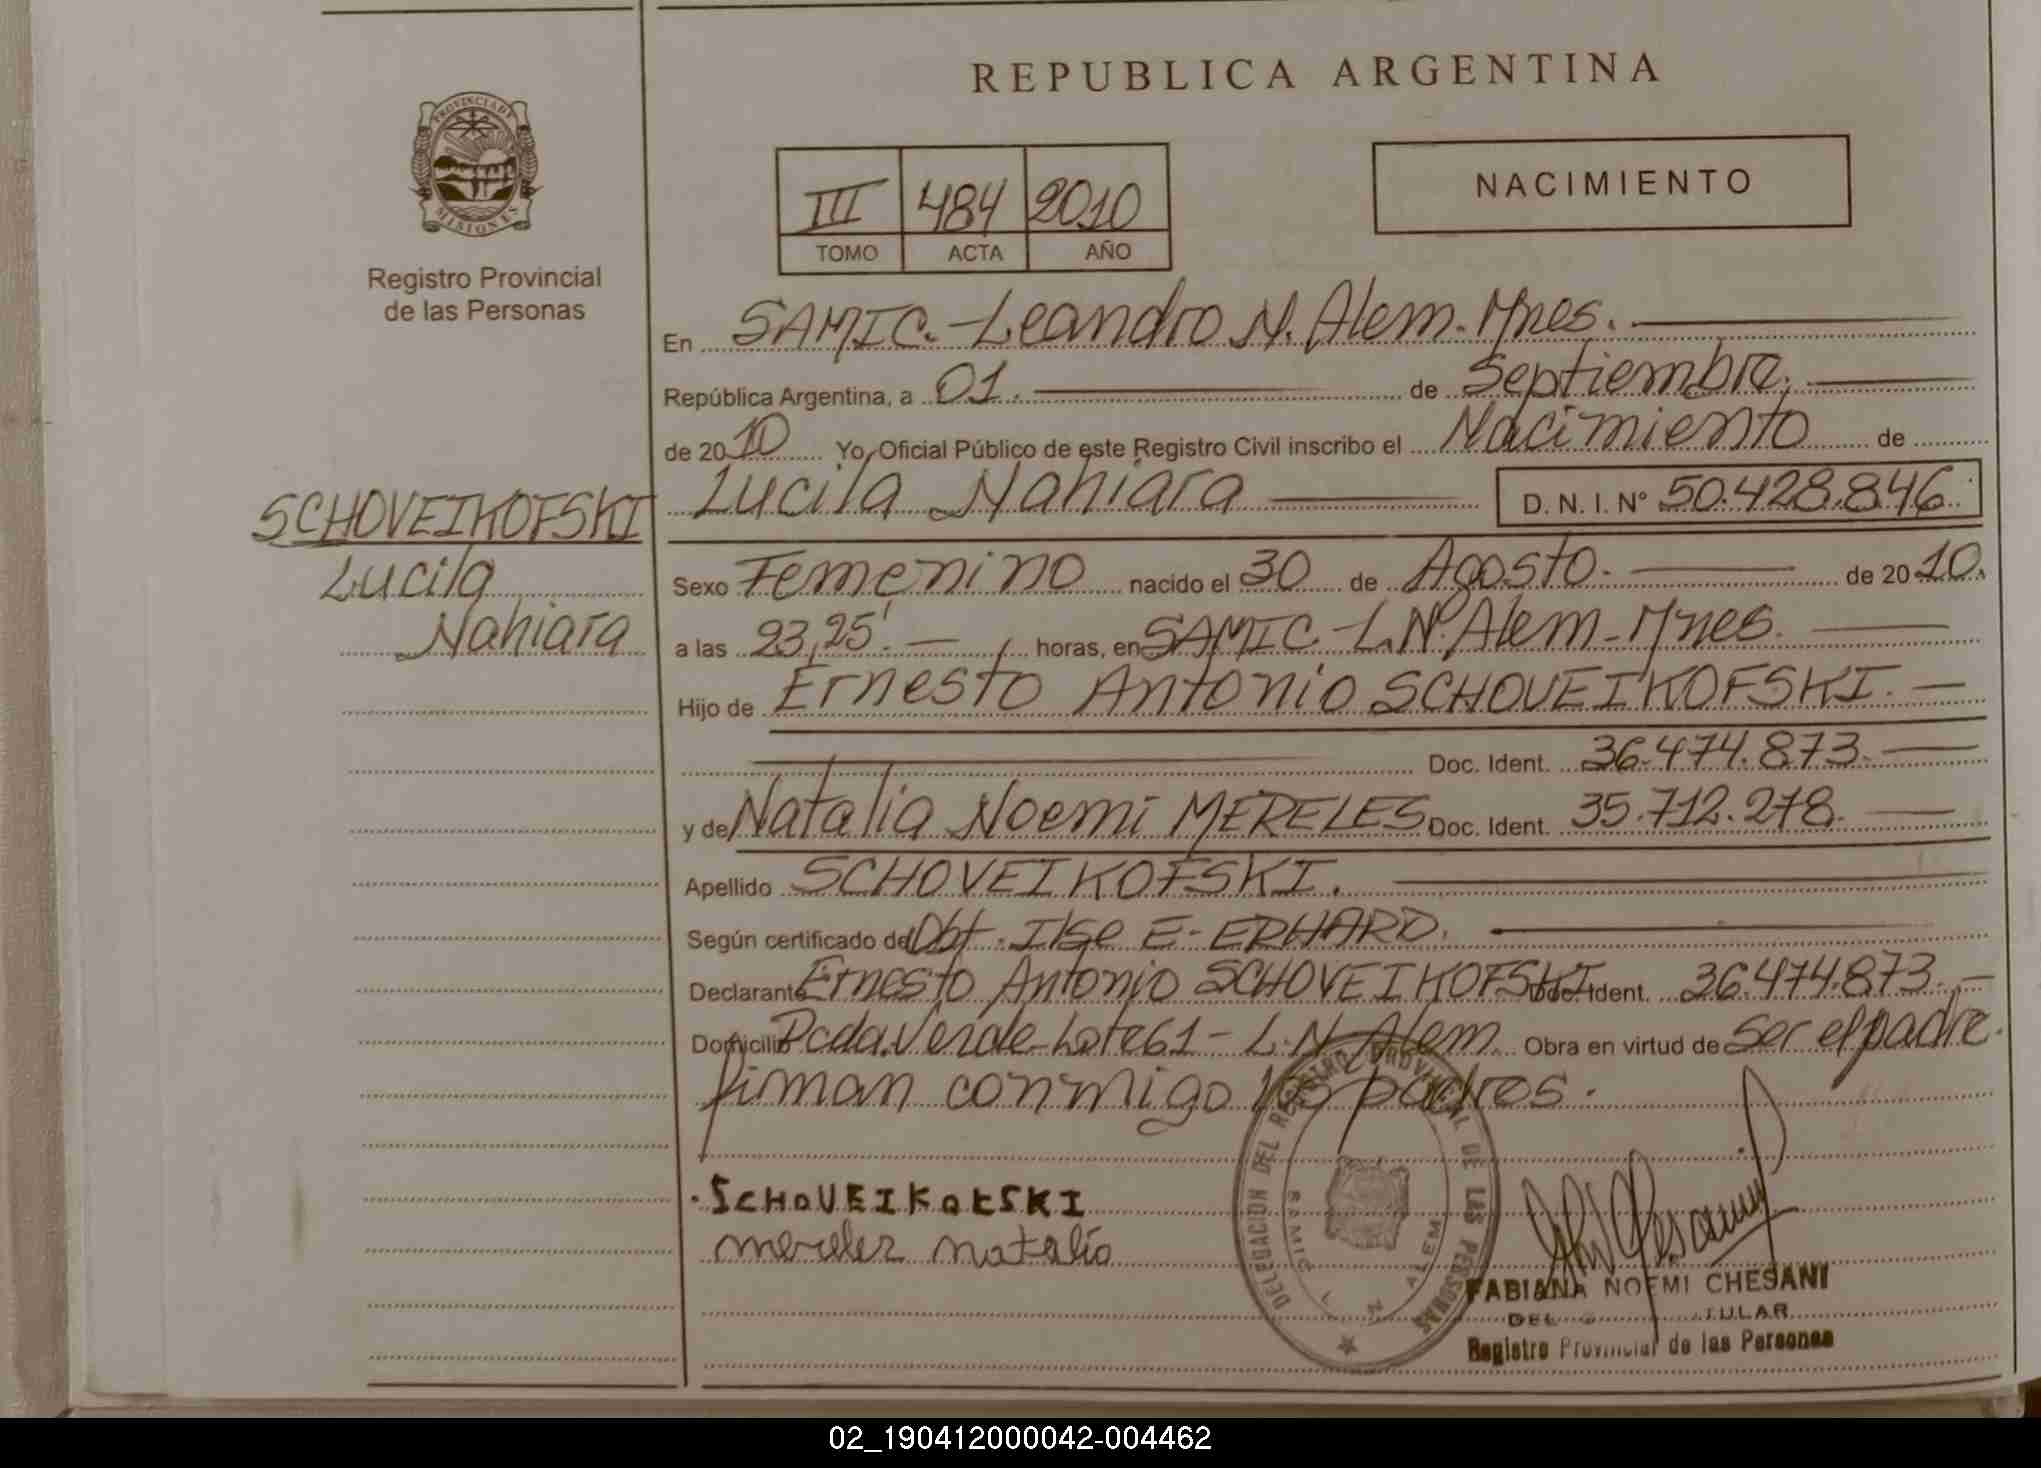 REPUBLICA ARGENTINA
PROVINCIA DE
MISIONES
Registro Provincial
de las Personas
III 484 2010
TOMO ACTA AÑO
NACIMIENTO
En SAMIC.-Leandro N. Alem-Mnes.
República Argentina, a 01. de Septiembre.
de 2010 Yo, Oficial Público de este Registro Civil inscribo el Nacimiento de
Lucila Nahiara D. N. I. N° 50.428.846
SCHOVEIKOFSKI
Lucila
Nahiara
Sexo Femenino nacido el 30 de Agosto. de 2010.
a las 23,25'. horas, en SAMIC-L.N. Alem-Mnes.
Hijo de Ernesto Antonio SCHOVEIKOFSKI.
Doc. Ident. 36.474.873.
y de Natalia Noemi MERELES Doc. Ident. 35.712.278.
Apellido SCHOVEIKOFSKI.
Según certificado de Obt. Ilse E. ERHARD.
Declarante Ernesto Antonio SCHOVEIKOFSKI Doc. Ident. 36.474.873.
Domicilio Pcda.Verde-Lote61-L.N.Alem. Obra en virtud de Ser el padre.
firman conmigo los padres.
SCHOVEIKOFSKI
mereles natalia
DELEGACION DEL REGISTRO PROVINCIAL DE LAS PERSONAS
SAMIC L. N. ALEM
FABIANA NOEMI CHESANI
Registro Provincial de las Personas
02_190412000042-004462